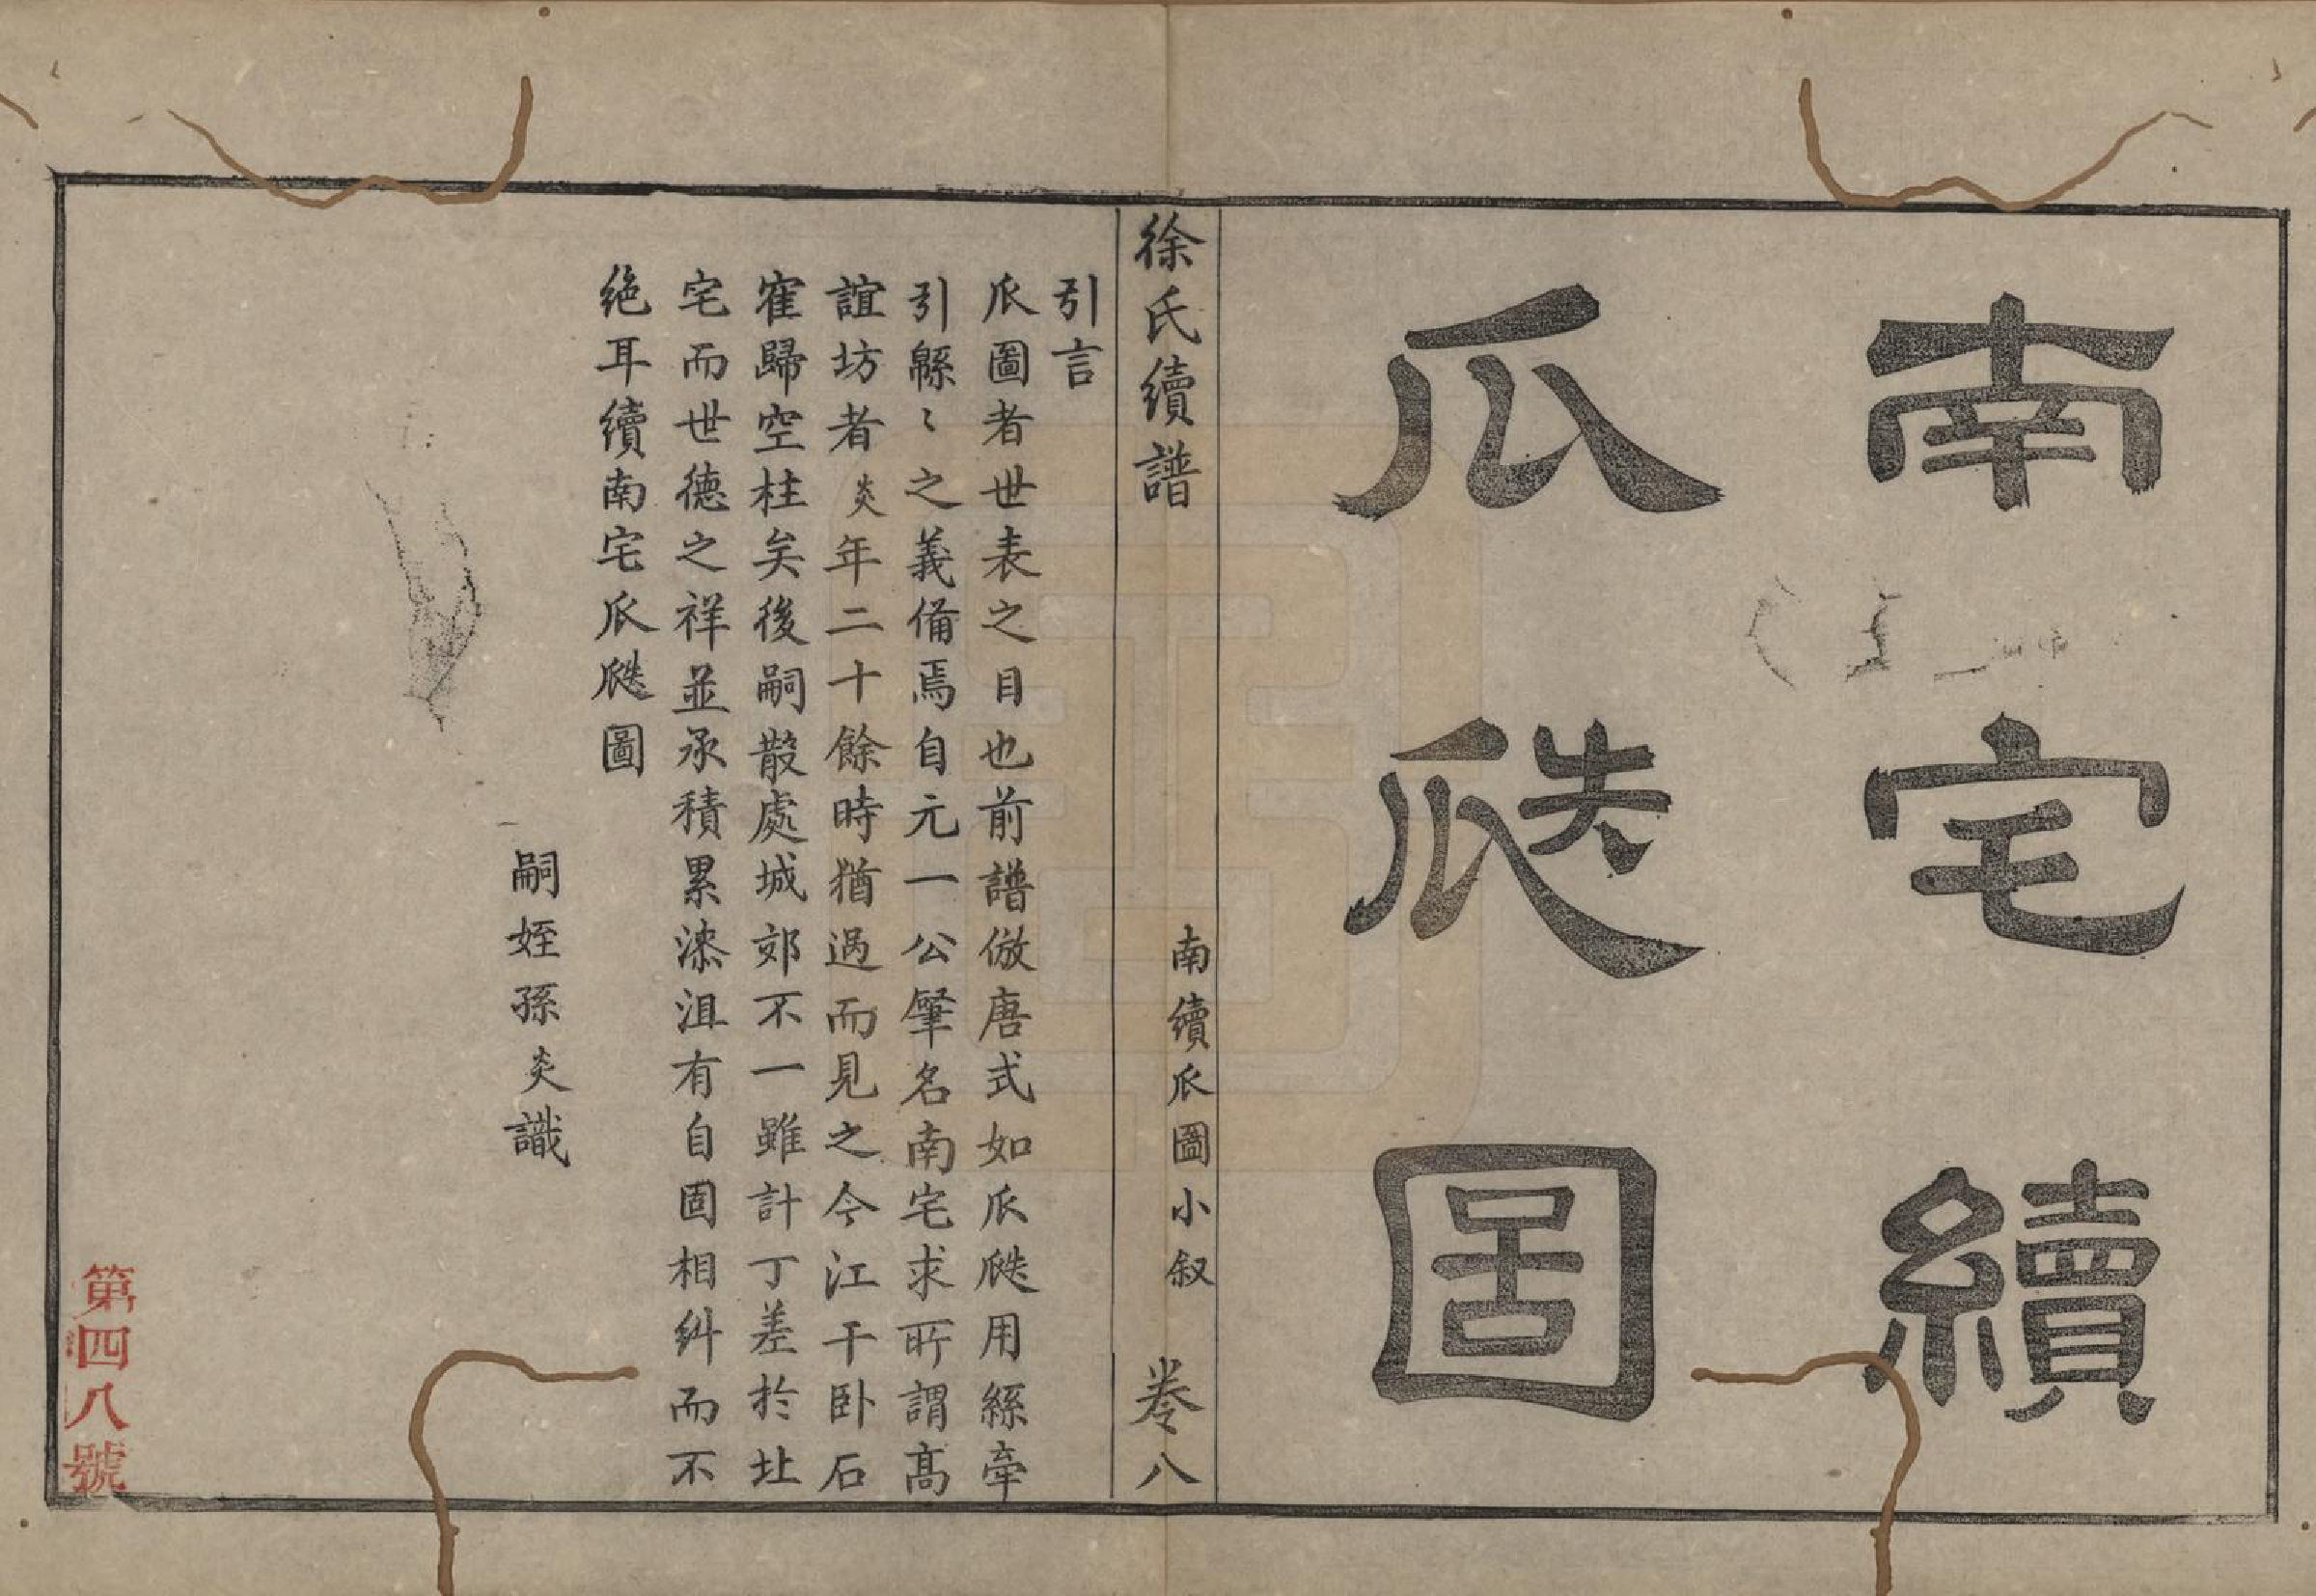 南宅續
瓜瓞圖
徐氏續譜
南續瓜圖小叙
卷八
引言
瓜圖者世表之目也前譜倣唐式如瓜瓞用絲牽
引緜〻之義備焉自元一公肇名南宅求所謂高
誼坊者炎年二十餘時猶過而見之今江干卧石
寉歸空柱矣後嗣散處城郊不一雖計丁差於北
宅而世德之祥並承積累漆沮有自固相糾而不
絶耳續南宅瓜瓞圖
嗣姪孫炎識
第四八號